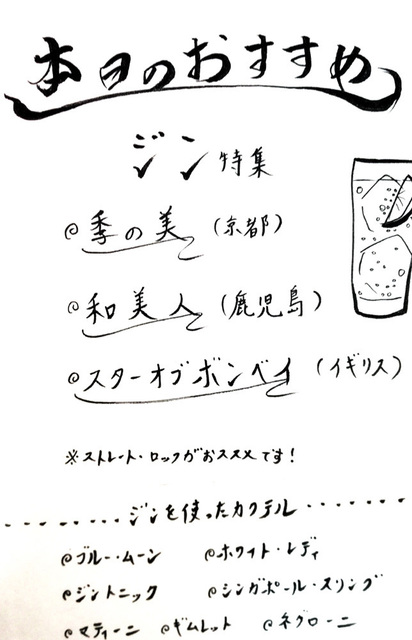 本日のおすすめ
ジン特集
@季の美（京都）
@和美人（鹿児島）
@スターオブボンベイ（イギリス）
※ストレート・ロックがおススメです！
ジンを使ったカクテル
@ブルー・ムーン @ホワイト・レディ
@ジントニック @シンガポール・スリング
@マティーニ @ギムレット @ネグローニ